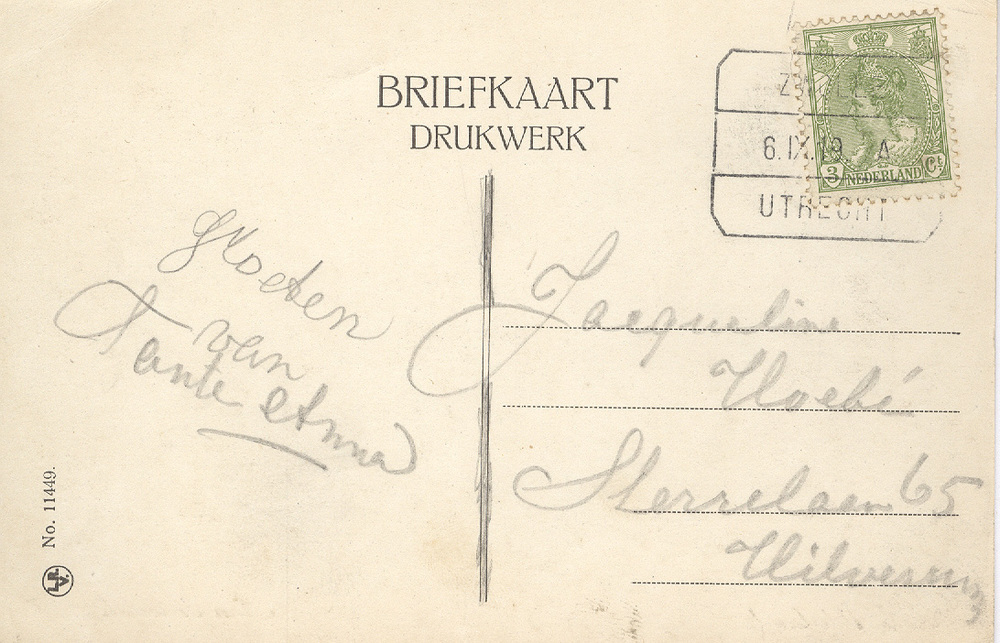 BRIEFKAART
DRUKWERK
6.IX.19 A
UTRECHT
3 NEDERLAND Ct
Groeten
van
Tante Anna
Jacqueline
Hoebé
Sterrelaan 65
Hilversum
No. 11449.